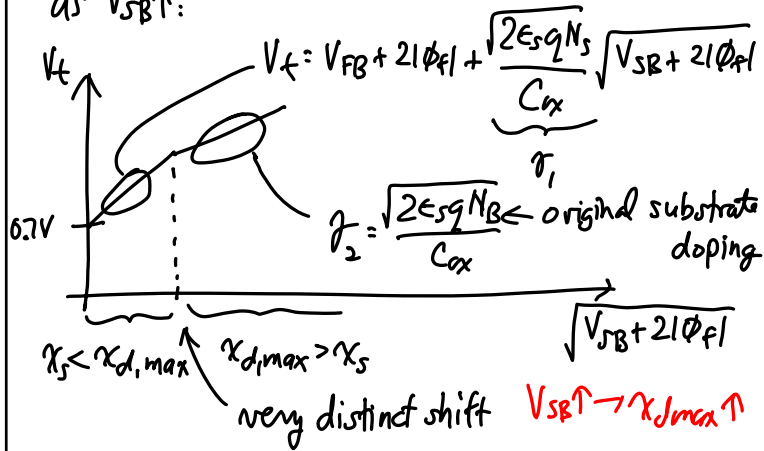 as V_SB↑:
V_t
V_t = V_FB + 2|ϕ_f| + √(2ϵ_s q N_s) / C_ox √(V_SB + 2|ϕ_f|)
γ_1
0.7V
γ_2 = √(2ϵ_s q N_B) / C_ox ← original substrate doping
√(V_SB + 2|ϕ_f|)
x_s < x_d,max
x_d,max > x_s
very distinct shift
V_SB↑ → x_dmax ↑